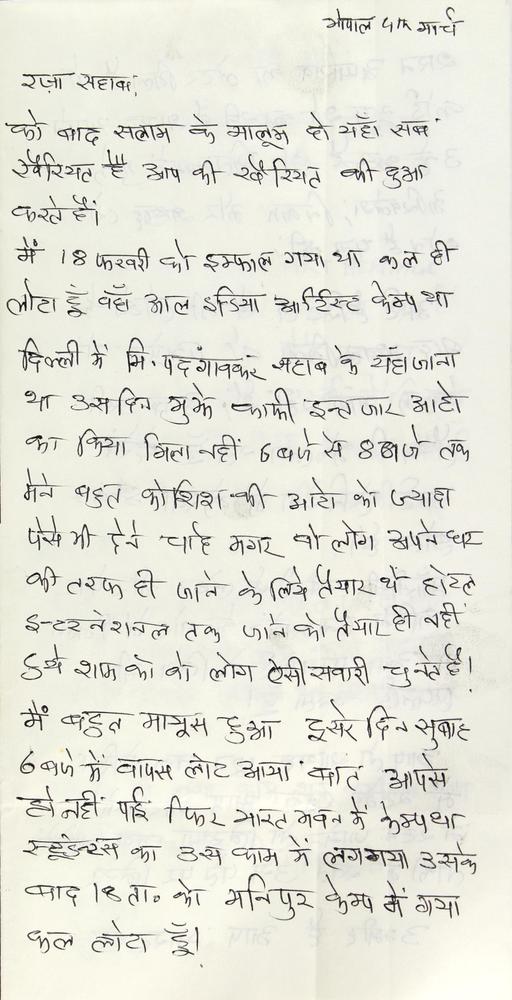 भोपाल 4th मार्च
रज़ा सहाब,
को बाद सलाम के मालूम हो यहाँ सब
खैरियत है आप की खैरियत की दुआ
करते हैं।
मैं 18 फरवरी को इम्फाल गया था कल ही
लोटा हूँ वहाँ आल इंडिया आर्टिस्ट केम्प था
दिल्ली में मि. पदगांवकर सहाब के यहाँ जाना
था उस दिन मुझे काफी इन्तजार आटो
का किया मिला नहीं 6 बजे से 8 बजे तक
मेने बहुत कोशिश की आटो को ज्यादा
पेसे भी देने चाहे मगर वो लोग अपने घर
की तरफ ही जाने के लिये तैयार थे होटल
इन्टरनेशनल तक जाने को तैयार ही नहीं
हुये शाम को वो लोग ऐसी सवारी चुनते है।
मैं बहुत मायूस हुआ दूसरे दिन सुबाह
6 बजे में वापस लोट आया बात आपसे
हो नहीं पाई फिर भारत भवन में केम्प था
स्टूडेन्टस का उस काम में लग गया उसके
बाद 18 ता. को मनिपुर केम्प में गया
कल लोटा हूँ।